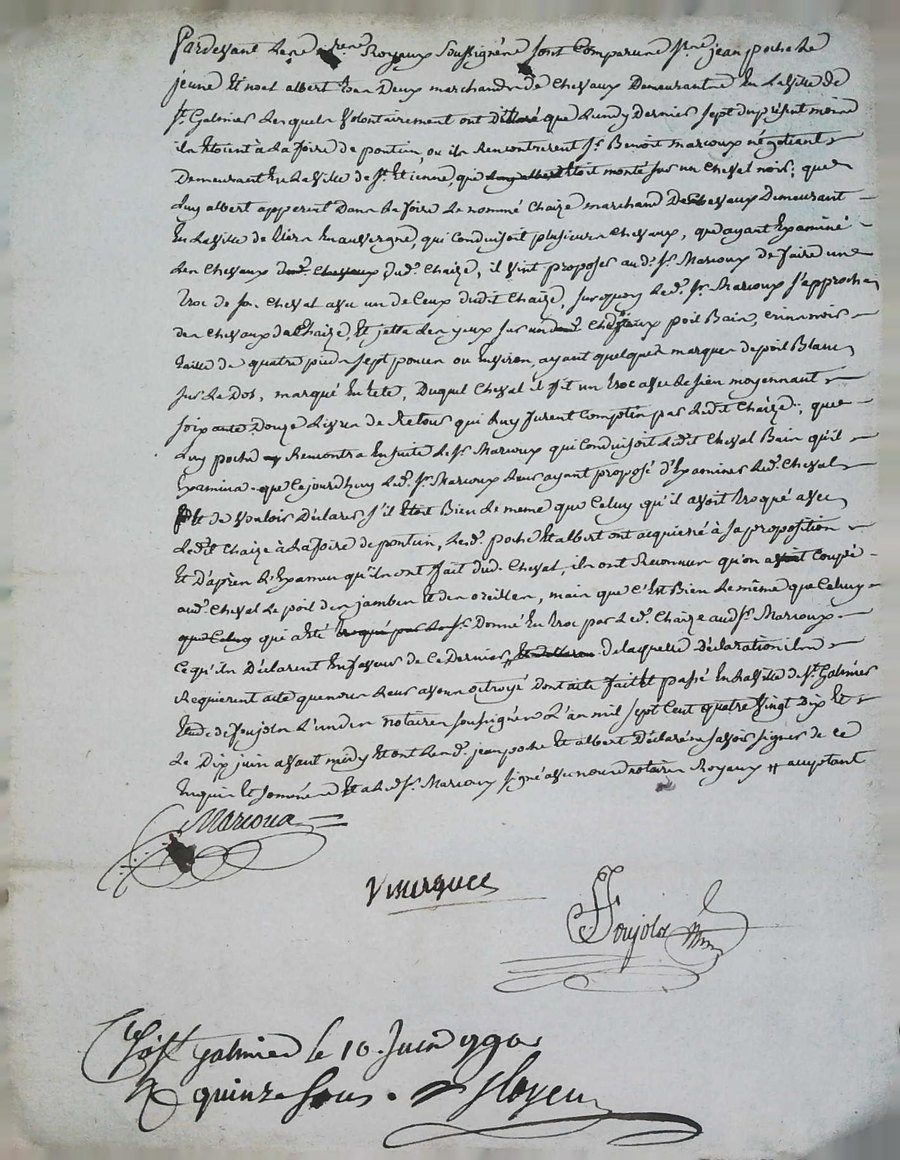 Pardevant les nres Royaux Soussignés sont Comparus Sr. jean poche le
jeune Et noel albert tous Deux marchands de Chevaux Demeurants En La Ville de
St. Galmier Lesquels Volontairement ont Déclaré que Lundy Dernier sept du présent mois
ils Etoient à La foire de pontin, ou ils Rencontrerent Sr. Benoit marcoux négotiant
Demeurant En La Ville de St. Etienne, qui Etoit monté sur un Cheval noir; que
Luy albert apperçut Dans La foire Le nommé Chaize marchand De Chevaux Demeurant
En La Ville de Viera En auvergne, qui Conduisoit plusieurs Chevaux, que ayant Examiné
Les Chevaux dud. Chaize, il Vint proposer aud. Sr. Marcoux de faire une
Troc de son Cheval avec un de Ceux dudit Chaize, sur quoy Led. Sr. Marcoux s'approcha
des Chevaux de Chaize, Et jetta Les yeux sur un poil Bain, crins noirs
taille de quatre pieds sept pouces ou Environ, ayant quelques marques de poil Blanc
sur Le Dos, marqué En tete, Duquel Cheval il fit un troc avec Le sien moyennant
soixante Douze Livres de Retour qui Luy furent Comptés par Ledit Chaize; que
Luy poche Rencontra Ensuite Le Sr. Marcoux qui Conduisoit Ledit Cheval Bain qu'il
Examina que Cejourdhuy Led. Sr. Marcoux Leur ayant proposé d'Examiner Led. Cheval
Et de Vouloir Déclarer s'il Etoit Bien Le meme que Celuy qu'il avoit troqué avec
Ledit Chaize à La foire de pontin, Lesd. poche Et albert ont acquiessé à sa proposition
Et D'après L'Examen qu'ils ont fait dud. Cheval, ils ont Reconnu qu'on a Coupé
aud. Cheval Le poil des jambes Et des oreilles, mais que C'Est Bien Le même que Celuy
qui a été Donné En troc par Led. Chaize aud. Sr. Marcoux
Ce qu'ils Déclarent En faveur de Ce Dernier, de laquelle Déclaration ils
Requierent acte que nous Leur avons octroyé Dont acte fait Et passé En La Ville de St. Galmier
Etude de foujols L'un des notaires soussignés L'an mil sept Cent quatre Vingt Dix Et
Le Dix juin avant midy Et ont Lesd. jean poche Et albert Déclaré ne savoir signer de Ce
Enquis Et sommés Et a Led. Sr. Marcoux signé avec nous d. notaires Royaux
Marcoux
Foujols
à St. Galmier le 10 Juin 1790
R quinze sous.